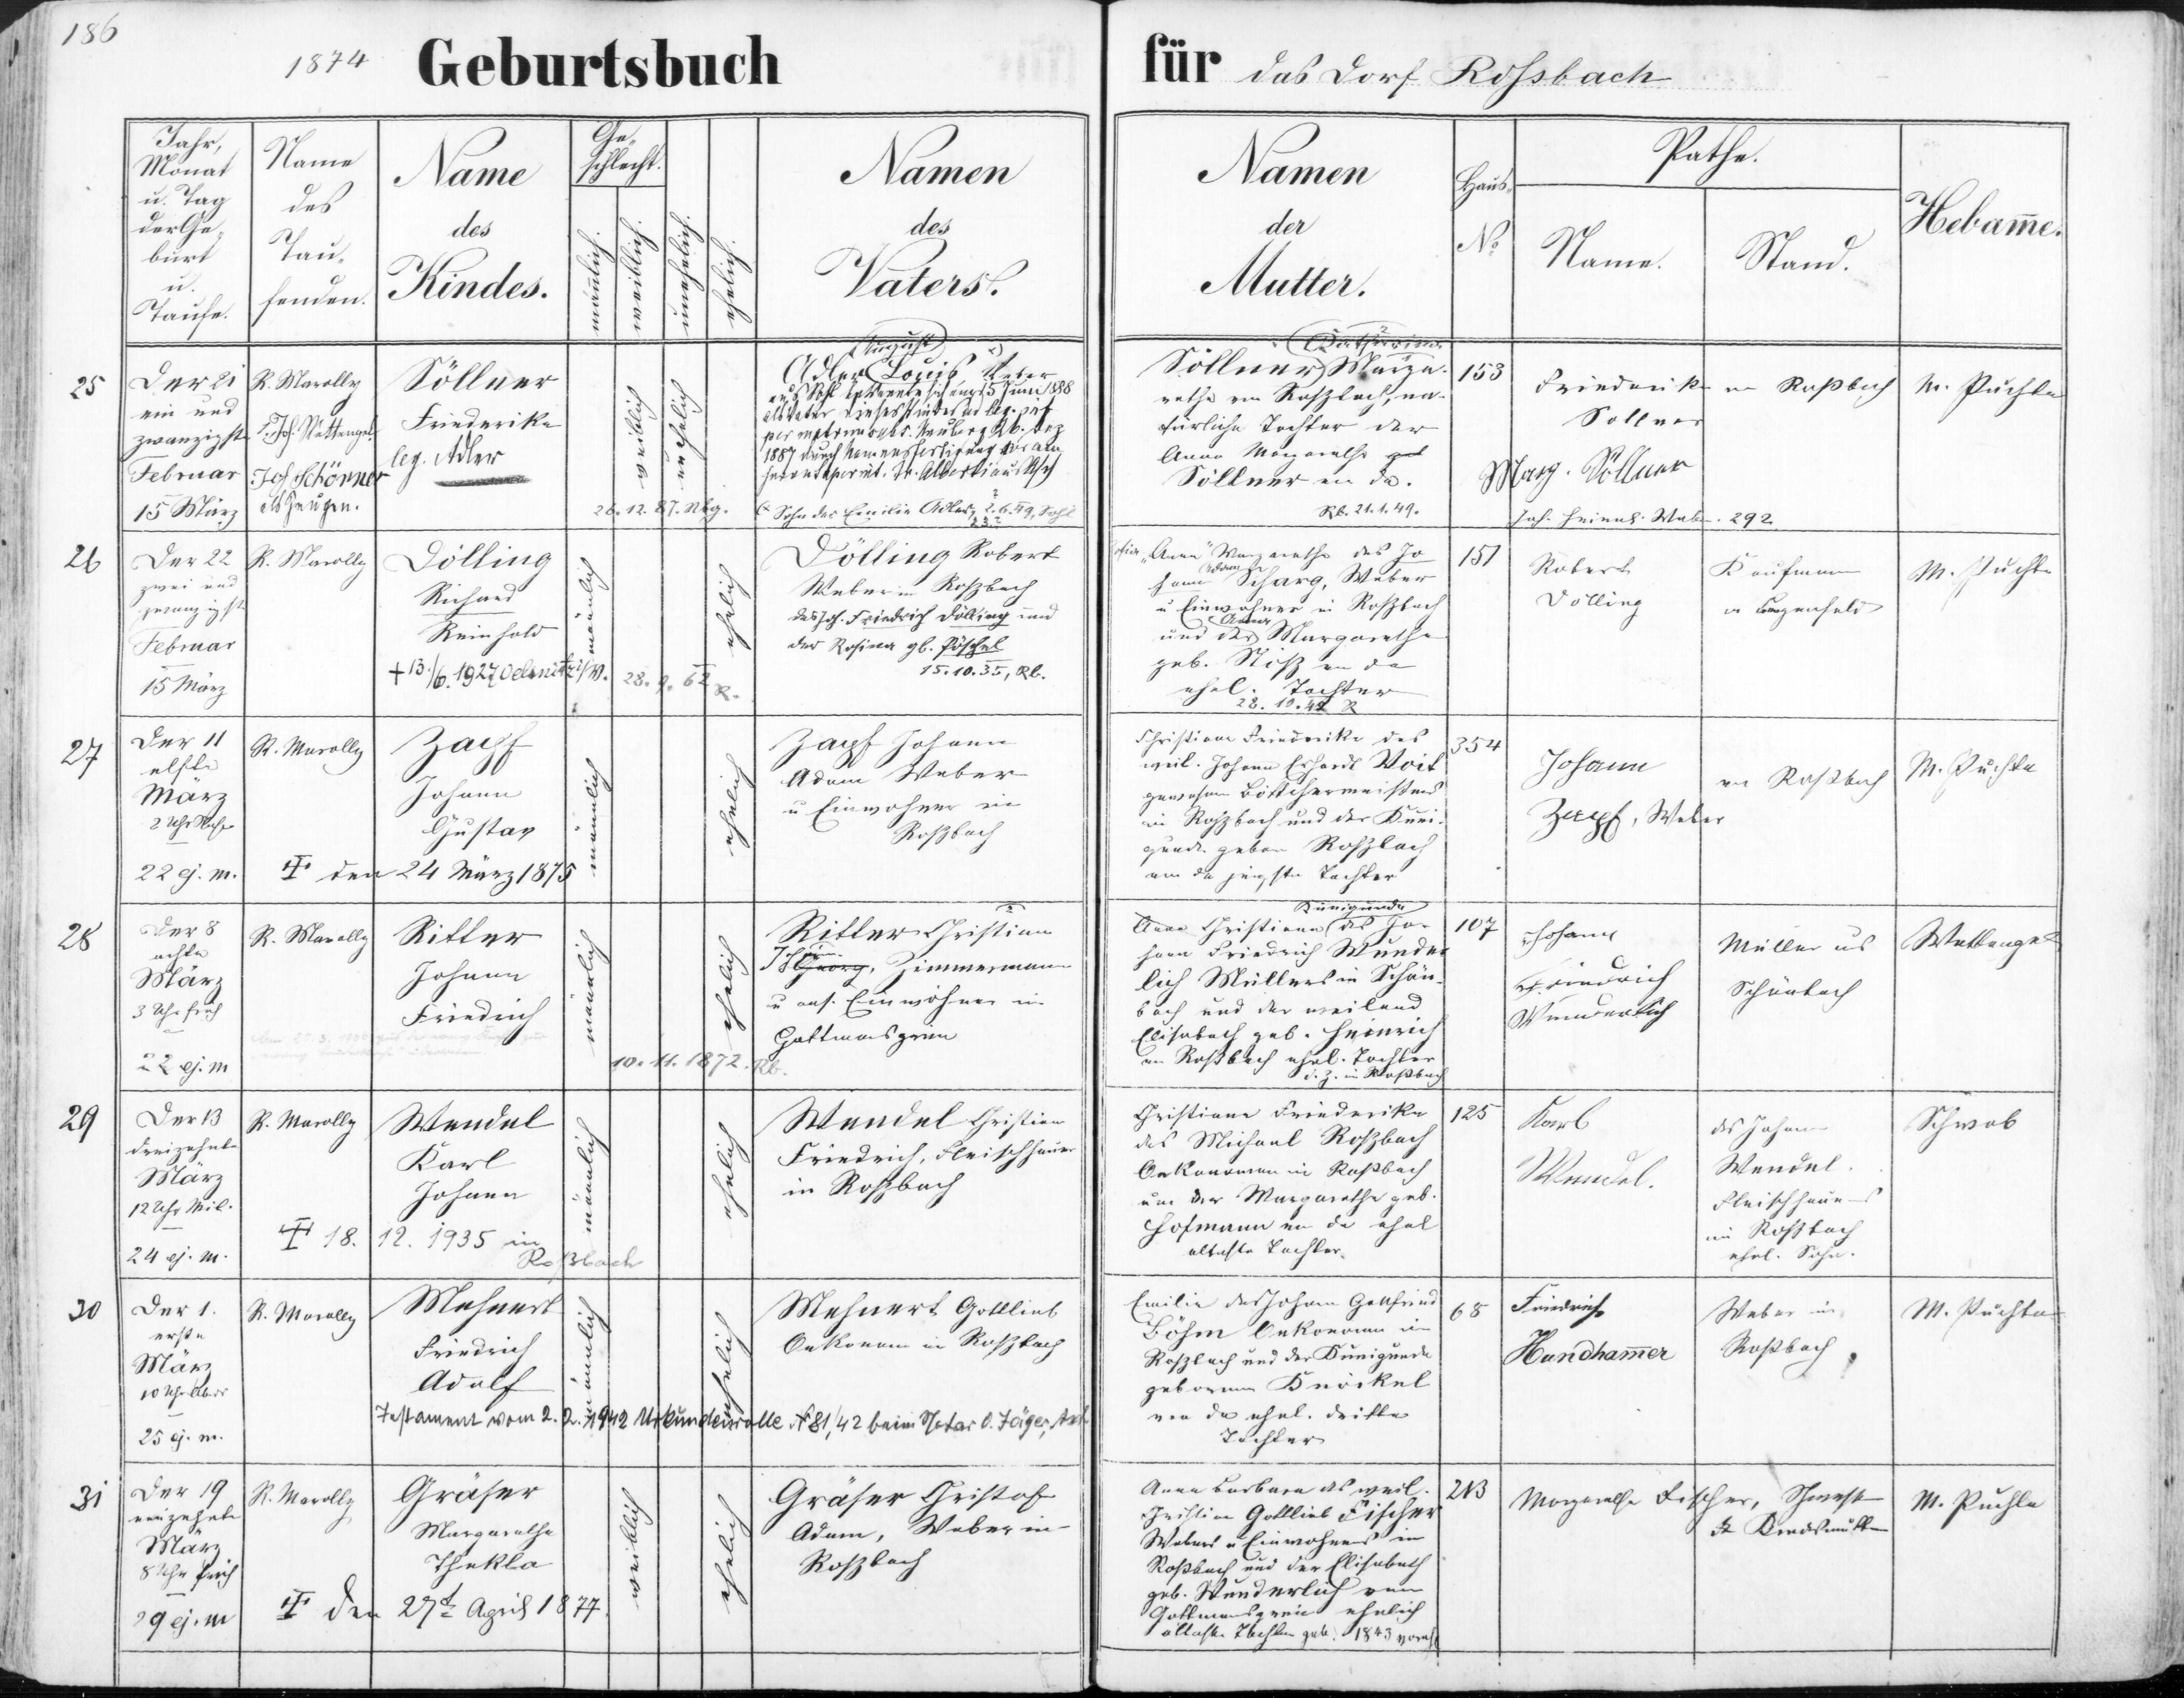 186
1874 Geburtsbuch für das Dorf Roßbach
Jahr,
Monat
u. Tag
der Ge-
burt
u.
Taufe.
Name
des
Tau-
fenden.
Name
des
Kindes.
Ge-
schlecht.
männlich.
weiblich.
unehelich.
ehelich.
Namen
des
Vaters.
Namen
der
Mutter.
Haus
No
Pathe.
Name.
Stand.
Hebame.
25
Der 21
ein und
zwanzigste
Februar
15 März
R. Marolly
Joh. Schörner
als Zeugen.
Söllner
Friederike
leg. Adler
weiblich
unehelich
28.12.87. Nbg.
August
Adler Louis Weber
Sohn der Emilie Adler, 2.6.49,
Catharina
Söllner Marga-
retha von Roßbach, na-
türliche Tochter der
Anna Margaretha
Söllner von da.
Rb. 21.1.49.
153
Friederike
Söllner
von Roßbach
Marg. Söllner
292
M. Puchta
26
Der 22
zwei und
zwanzigste
Februar
15 März
R. Marolly
Dölling
Richard
Reinhold
+ 13./6. 1927 Oelsnitz i/V.
männlich
ehelich
28. 9. 62 R.
Dölling Robert
Weber in Roßbach
des Joh. Friedrich Dölling und
der Rosina gb. Pöschel
15.10.35, Rb.
Anna Margaretha des Jo-
hann Adam Scharg, Weber
u Einwohner in Roßbach
und der Anna Margaretha
geb. Stöß von da
ehel. Tochter
28. 10. 42 R
151
Robert
Dölling
Kaufmann
in Lengenfeld
M. Puchta
27
Der 11
elfte
März
2 Uhr
22 ej. m.
R. Marolly
Zapf
Johann
Gustav
den 24 März 1875
männlich
ehelich
Zapf Johann
Adam Weber
u Einwohner in
Roßbach
Christiana Friederike des
weil. Johann Erhardt Voit
gewesenen Böttchermeisters
in Roßbach und der Kuni-
gunda geborn Roßbach
von da jüngste Tochter
354
Johann
Zapf, Weber
von Roßbach
M. Puchta
28
Der 8
achte
März
3 Uhr früh
22 ej. m
R. Marolly
Ritter
Johann
Friedrich
männlich
ehelich
10. 11. 1872. Rb.
Ritter Christian
Johann
Georg, Zimmermann
u ans. Einwohner in
Gottmansgrün
Kunigunda
Anna Christiana des Jo-
hann Friedrich Wunder
lich Müllers in Schön-
bach und der weiland
Elisabeth geb. Heinrich
von Roßbach ehel. Tochter
d. Z. in Roßbach
107
Johann
Friedrich
Wunderlich
Müller aus
Schönbach
Wettengel
29
Der 13
dreizehnte
März
12 Uhr Mit.
24 ej. m.
R. Marolly
Wendel
Karl
Johann
18. 12. 1935 in
Roßbach
männlich
ehelich
Wendel Christian
Friedrich, Fleischhauer
in Roßbach
Christiane Friederike
des Michael Roßbach
Oekonomen in Roßbach
und der Margaretha geb.
Hofmann von da ehel
älteste Tochter
125
Karl
Wendel.
des Johann
Wendel.
Fleischhauers
in Roßbach
ehel. Sohn.
Schwab
30
Der 1.
erste
März
10 Uhr Abds
25 ej. m.
R. Marolly
Mehnert
Friedrich
Adolf
männlich
ehelich
Testament vom 2. 2. 1942 Urkundenrolle No 81/42 beim Notar O. Jäger, Asch
Mehnert Gottlieb
Oekonom in Roßbach
Emilie des Johann Gottfried
Böhm Oekonom in
Roßbach und der Kunigunda
geborenen Knöckel
von da ehel. dritte
Tochter
68
Friedrich
Hundhamer
Weber in
Roßbach
M. Puchta
31
Der 19
neunzehnte
März
8 Uhr früh
29 ej. m
R. Marolly
Gräser
Margaretha
Thekla
den 27t April 1877.
weiblich
ehelich
Gräser Christof
Adam, Weber in
Roßbach
Anna Barbara des weil.
Christian Gottlieb Fischer
Webers u Einwohners in
Roßbach und der Elisabeth
geb. Wunderlich von
Gottmansgrün ehelich
älteste Tochter geb. 1843
213
Margaretha Fischer, Schwest
d. Kindsmutter
M. Puchta